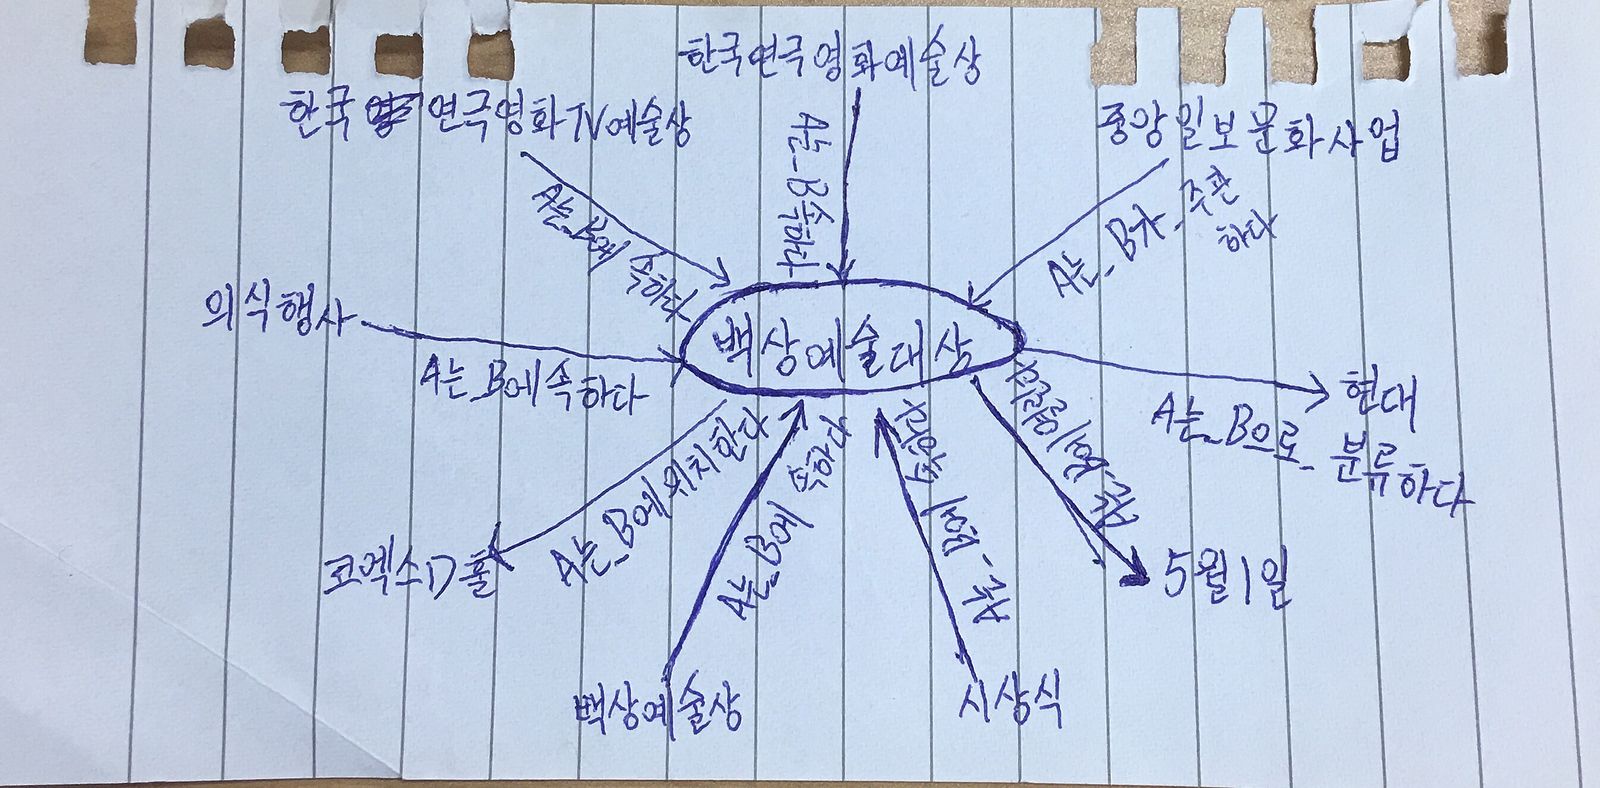 한국연극영화예술상
한국 연극영화TV예술상
중앙일보문화사업
A는_B속하다
A는_B에 속하다
A는_B가_주관
하다
의식행사
백상예술대상
A는_B에속하다
현대
A는_B으로_분류하다
A는_B에위치한다
A는_B에 속하다
A는_B에 속하다
코엑스D홀
5월1일
백상예술상
시상식